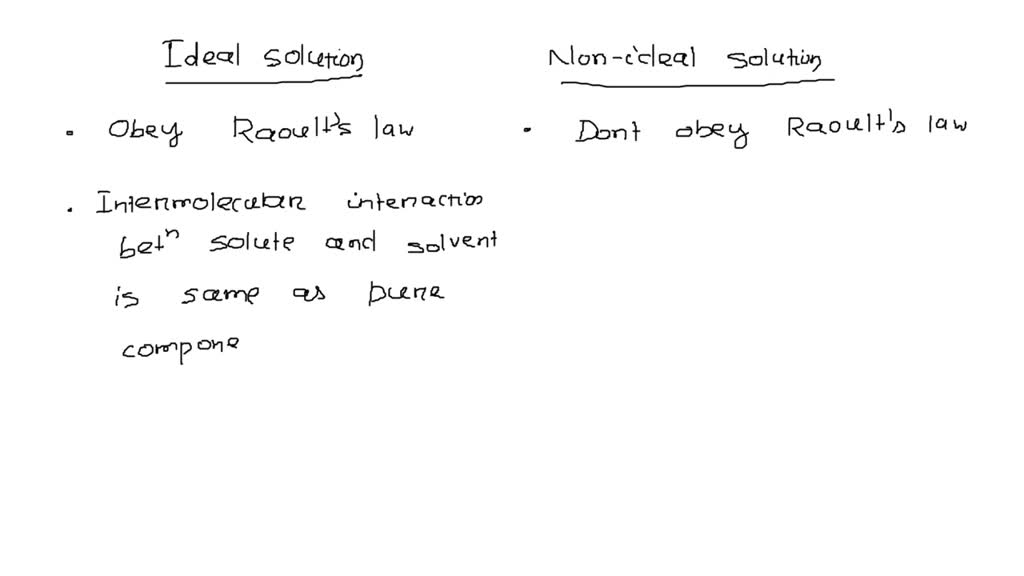 Ideal solution
Non-ideal solution
• Obey Raoult's law
• Dont obey Raoult's law
• Intermolecular interaction
betⁿ solute and solvent
is same as pure
compone